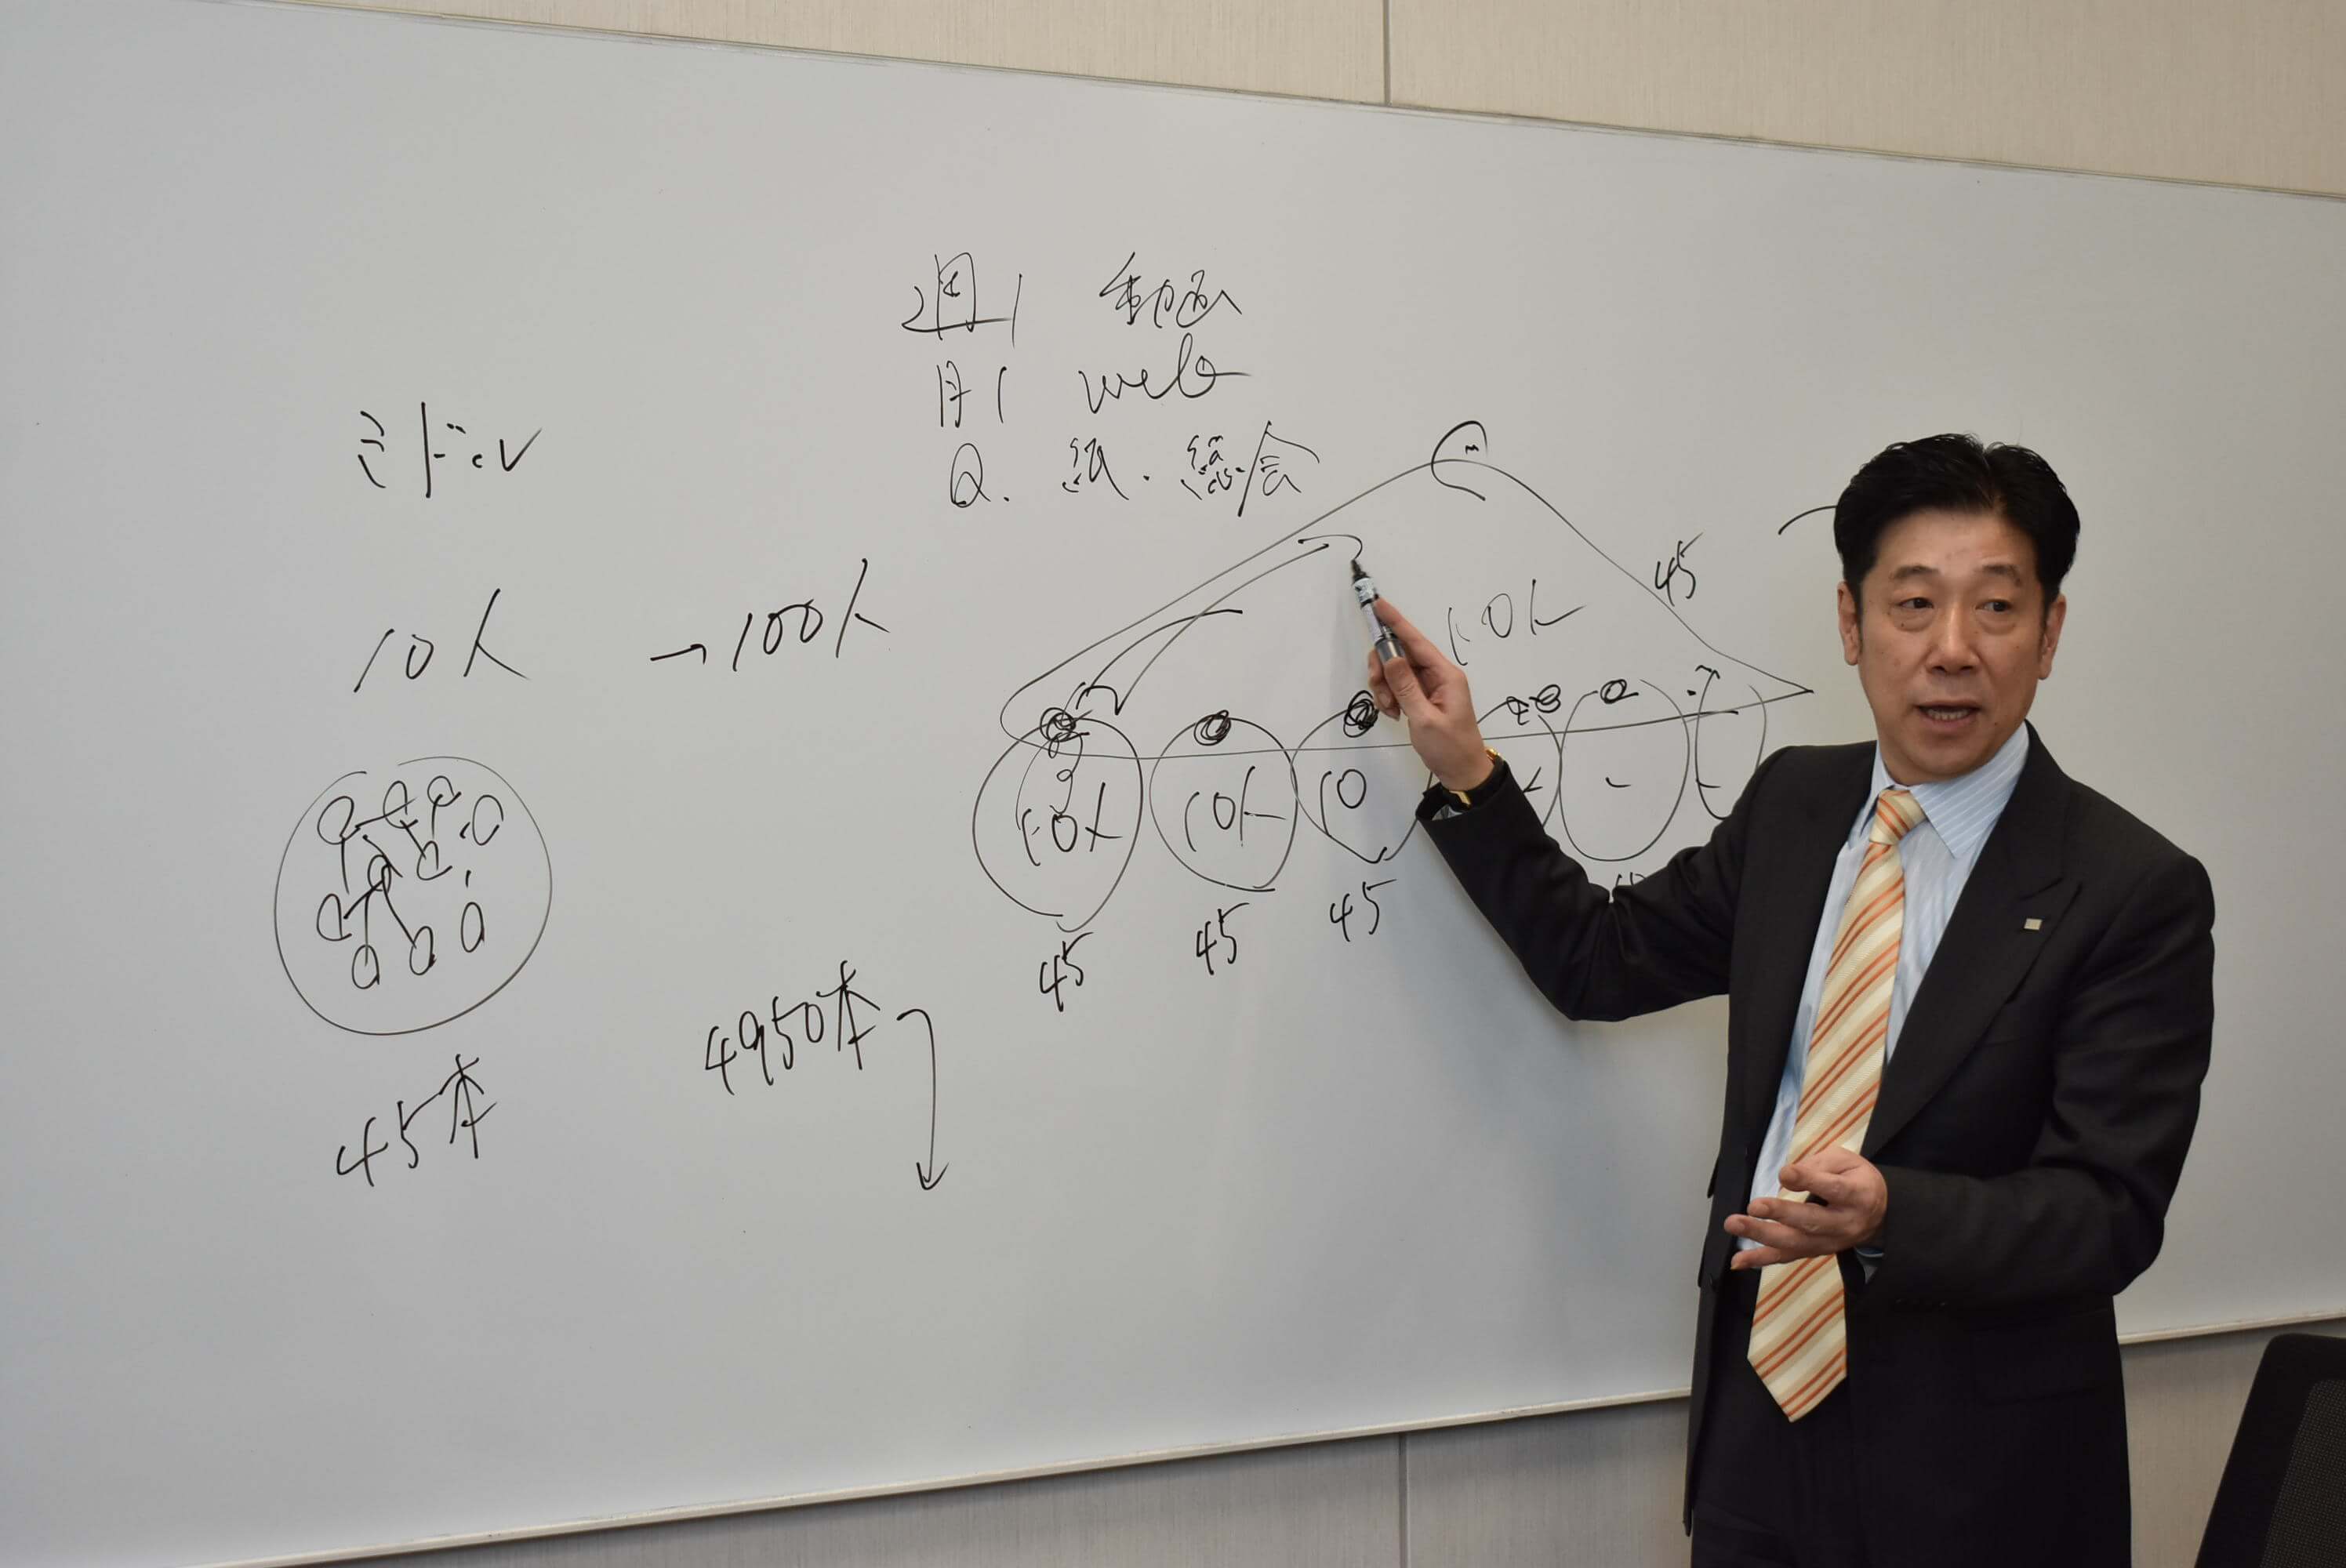 週1 動画
月1 web
Q. 紙・総会
ミドル
10人 → 100人
10人
45
10人 10人 10
45 45 45
4950本
45本